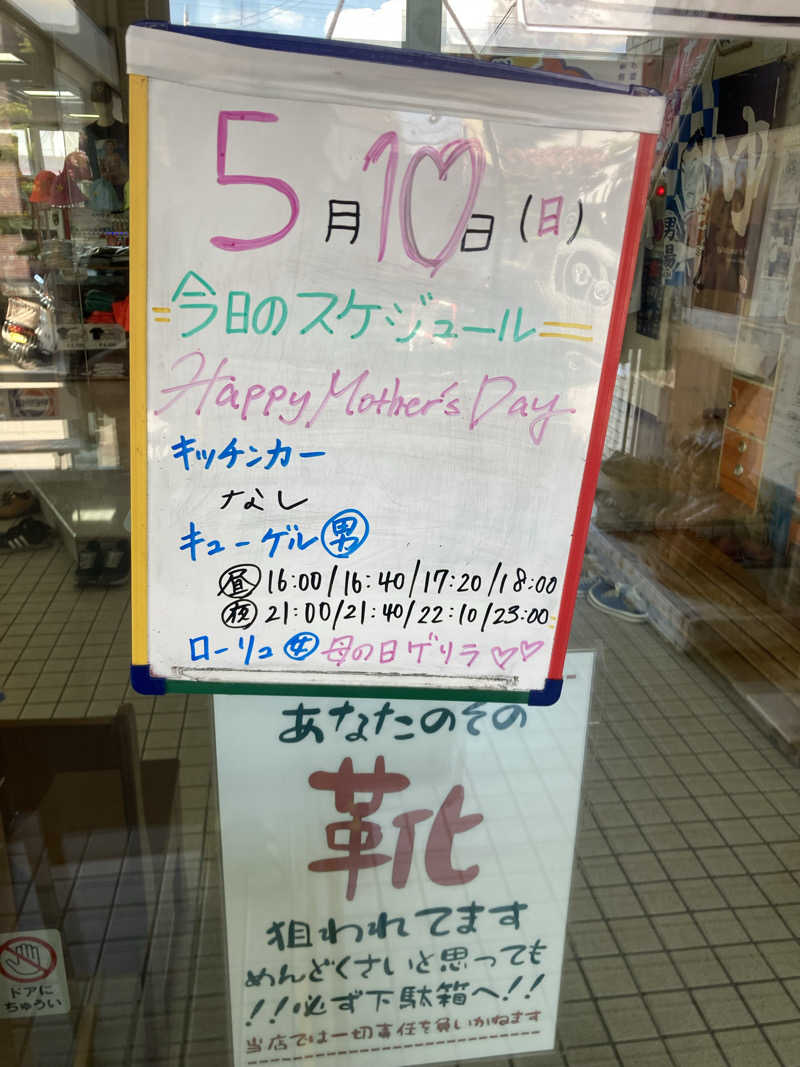 5月10日(日)
=今日のスケジュール=
Happy Mother's Day
キッチンカー
なし
キューゲル男
昼 16:00/16:40/17:20/18:00
夜 21:00/21:40/22:10/23:00
ローリュ女 母の日ゲリラ♡♡
あなたのその
靴
狙われてます
めんどくさいと思っても
!!必ず下駄箱へ!!
当店では一切責任を負いかねます
ドアに
ちゅうい